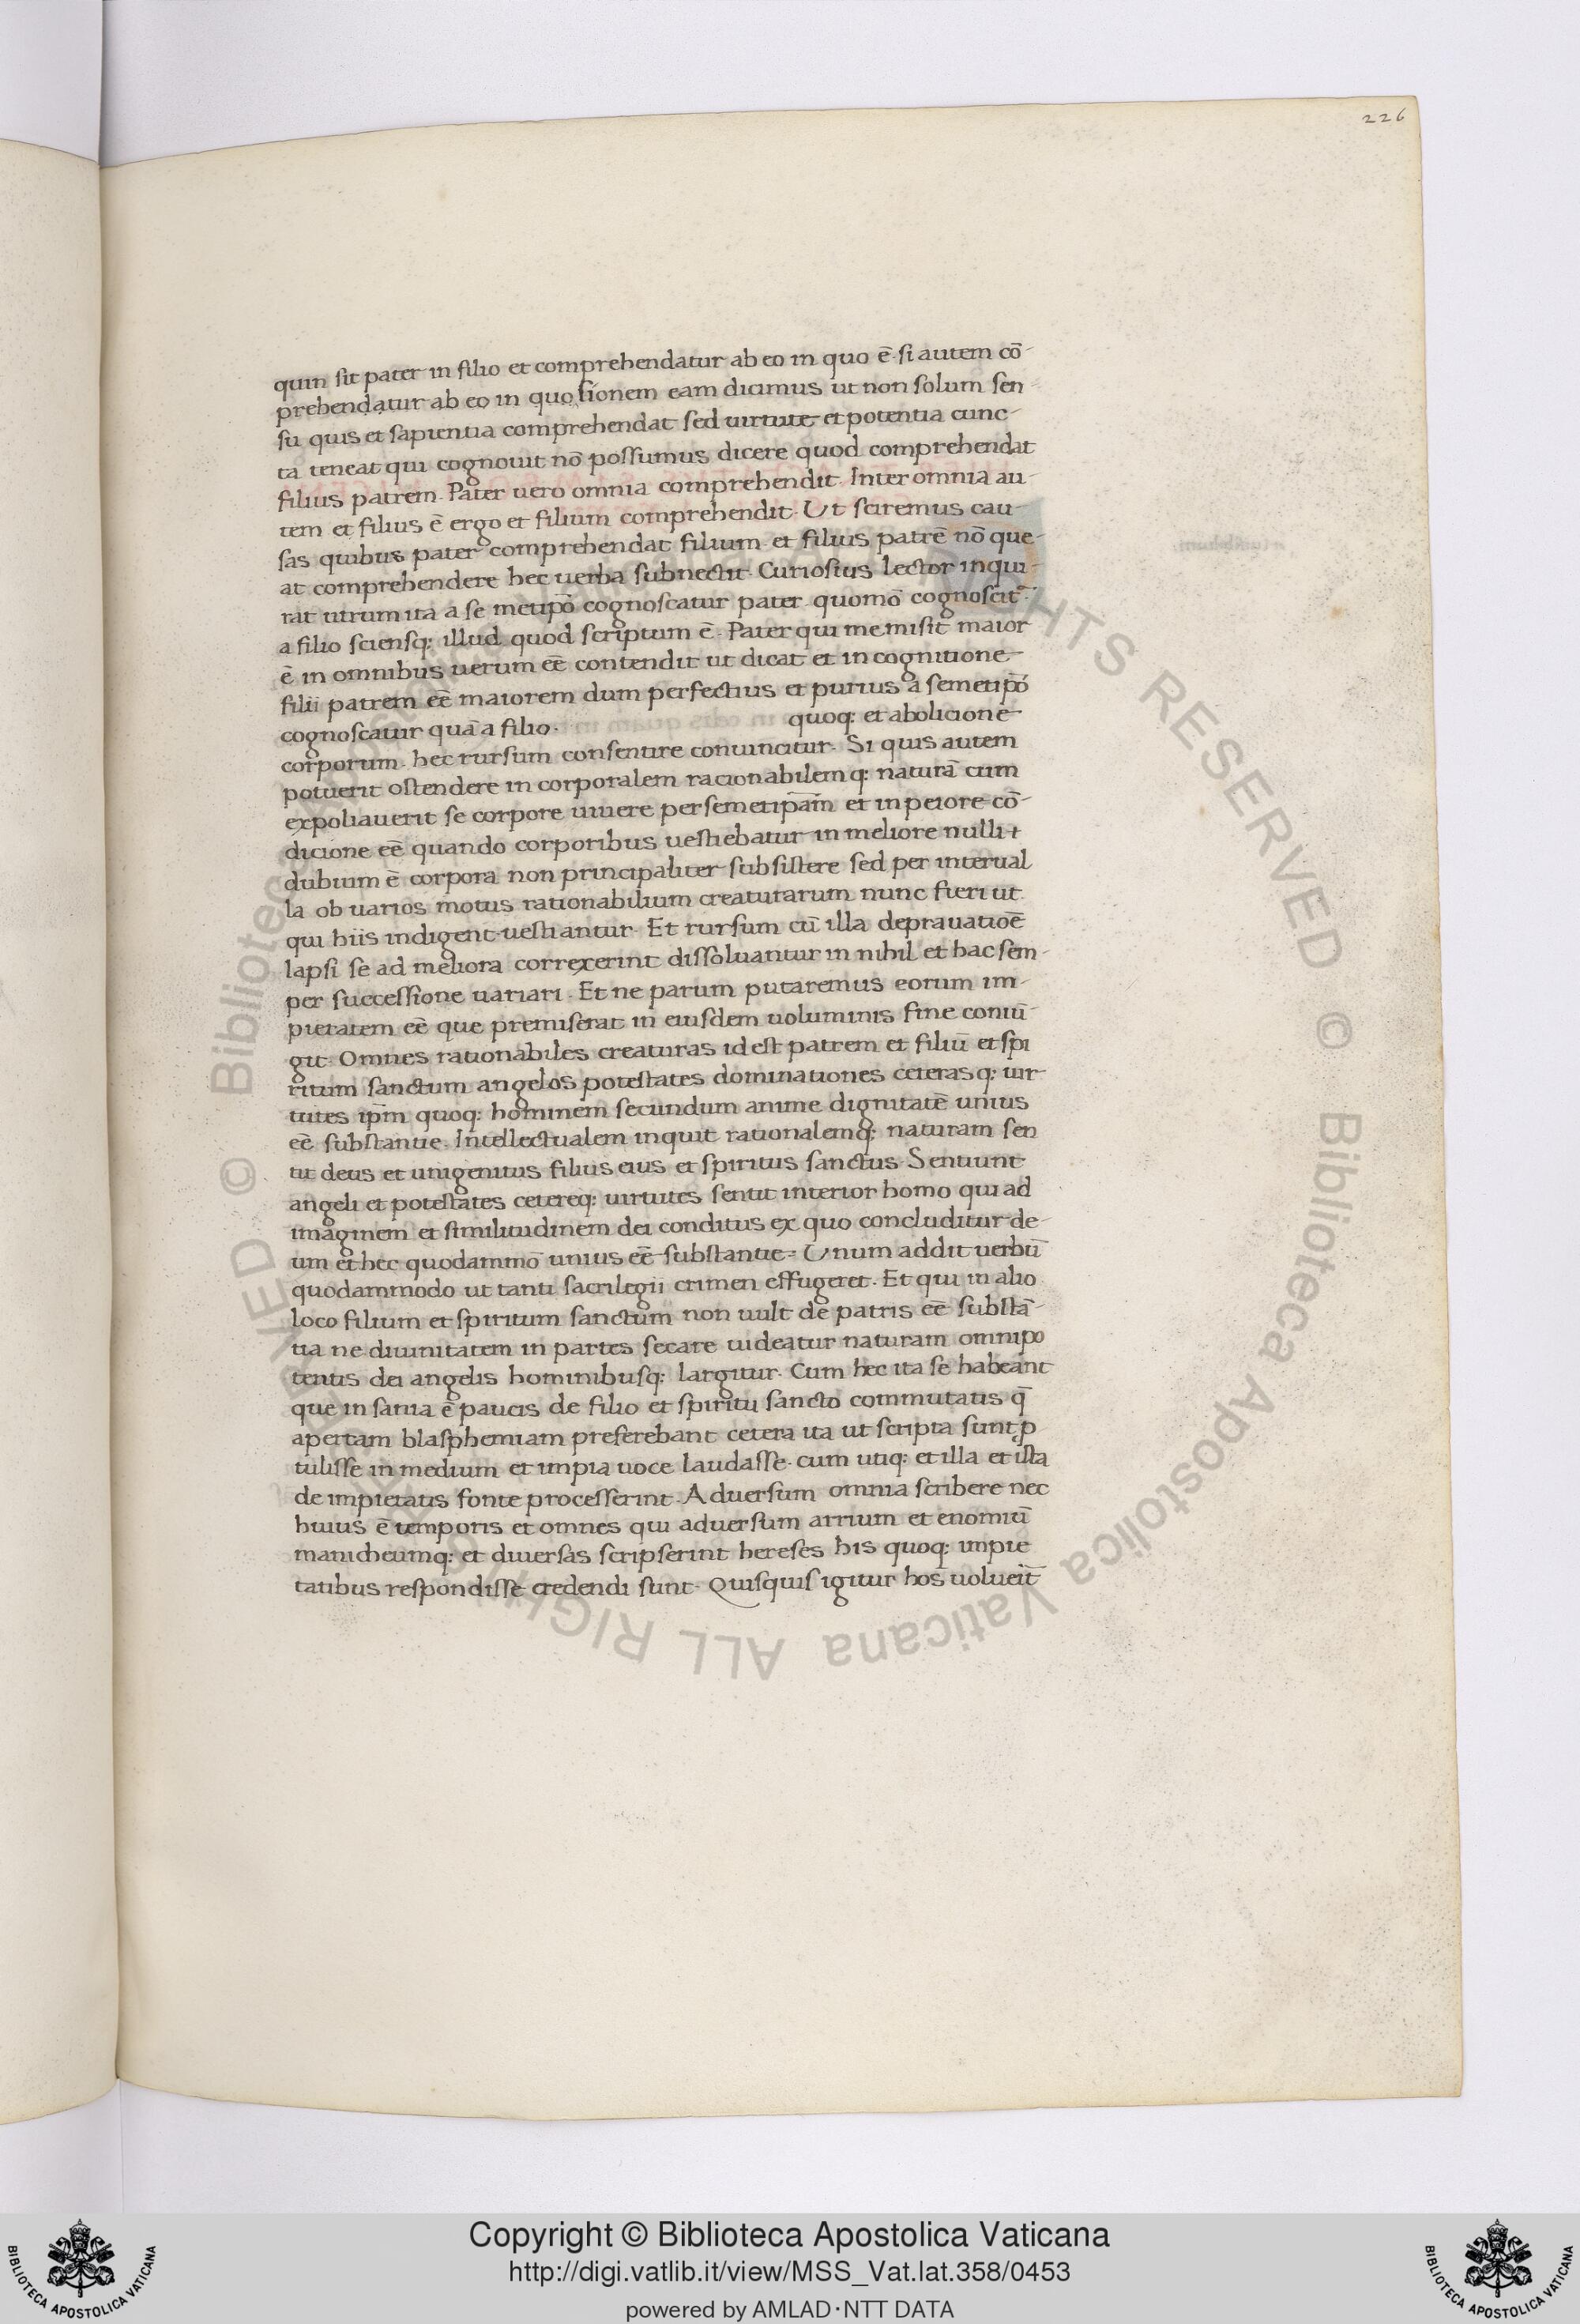 226
quin sit pater in filio et comprehendatur ab eo in quo ē si autem cō-
prehendatur ab eo in quo sionem eam dicimus ut non solum sen
su quis et sapientia comprehendat sed uirtute et potentia cunc-
ta teneat qui cognouit nō possumus dicere quod comprehendat
filius patrem. Pater uero omnia comprehendit. Inter omnia au-
tem et filius ē ergo et filium comprehendit. Ut sciremus cau-
sas quibus pater comprehendat filium et filius patrē nō que-
at comprehendere hec uerba subnectit. Curiosius lector inqui-
rat utrum ita a se metipō cognoscatur pater quomō cognoscit̄
a filio sciensq: illud quod scriptum ē. Pater qui me misit maior
ē in omnibus uerum eē contendit ut dicat et in cognitione
filii patrem eē maiorem dum perfectius et purius a semetipō
cognoscatur quā a filio. quoq: et abolicionē
corporum. hec rursum consentire conuincitur. Si quis autem
potuerit ostendere incorporalem racionabilemq: naturā cum
expoliauerit se corpore uiuere per semetip̄am et in peiore cō-
dicione eē quando corporibus uestiebatur in meliore nulli
dubium ē corpora non principaliter subsistere sed per interual
la ob uarios motus rationabilium creaturarum nunc fieri ut
qui hiis indigent uestiantur. Et rursum cū illa deprauatioē
lapsi se ad meliora correxerint dissoluantur in nihil et hac sem-
per successione uariari. Et ne parum putaremus eorum im-
pietatem eē que premiserat in eiusdem uoluminis fine coniū-
git. Omnes rationabiles creaturas id est patrem et filiū et spi
ritum sanctum angelos potestates dominationes ceterasq: uir-
tutes ip̄m quoq: hominem secundum anime dignitatē unius
eē substantie. Intellectualem inquit rationalemq: naturam sen
tit deus et unigenitus filius eius et spiritus sanctus. Sentiunt
angeli et potestates cetereq: uirtutes sentit interior homo qui ad
imaginem et similitudinem dei conditus ex quo concluditur de-
um et hec quodammō unius eē substantie. Unum addit uerbū
quodammodo ut tanti sacrilegii crimen effugeret. Et qui in alio
loco filium et spiritum sanctum non uult de patris eē substā-
tia ne diuinitatem in partes secare uideatur naturam omnipo
tentis dei angelis hominibusq: largitur. Cum hec ita se habeant
que insania ē paucis de filio et spiritu sancto commutatis q̄
apertam blasphemiam preferebant cetera ita ut scripta sunt ꝓ
tulisse in medium et impia uoce laudasse. cum utiq: et illa et ista
de impietatis fonte processerint. Aduersum omnia scribere nec
huius ē temporis et omnes qui aduersum arrium et enomiū
manicheumq: et diuersas scripserint hereses his quoq: impie
tatibus respondisse credendi sunt. Quisquis igitur hos uolueit̄
© Biblioteca Apostolica Vaticana ALL RIGHTS RESERVED
Copyright © Biblioteca Apostolica Vaticana
http://digi.vatlib.it/view/MSS_Vat.lat.358/0453
powered by AMLAD·NTT DATA
BIBLIOTECA APOSTOLICA VATICANA
BIBLIOTECA APOSTOLICA VATICANA